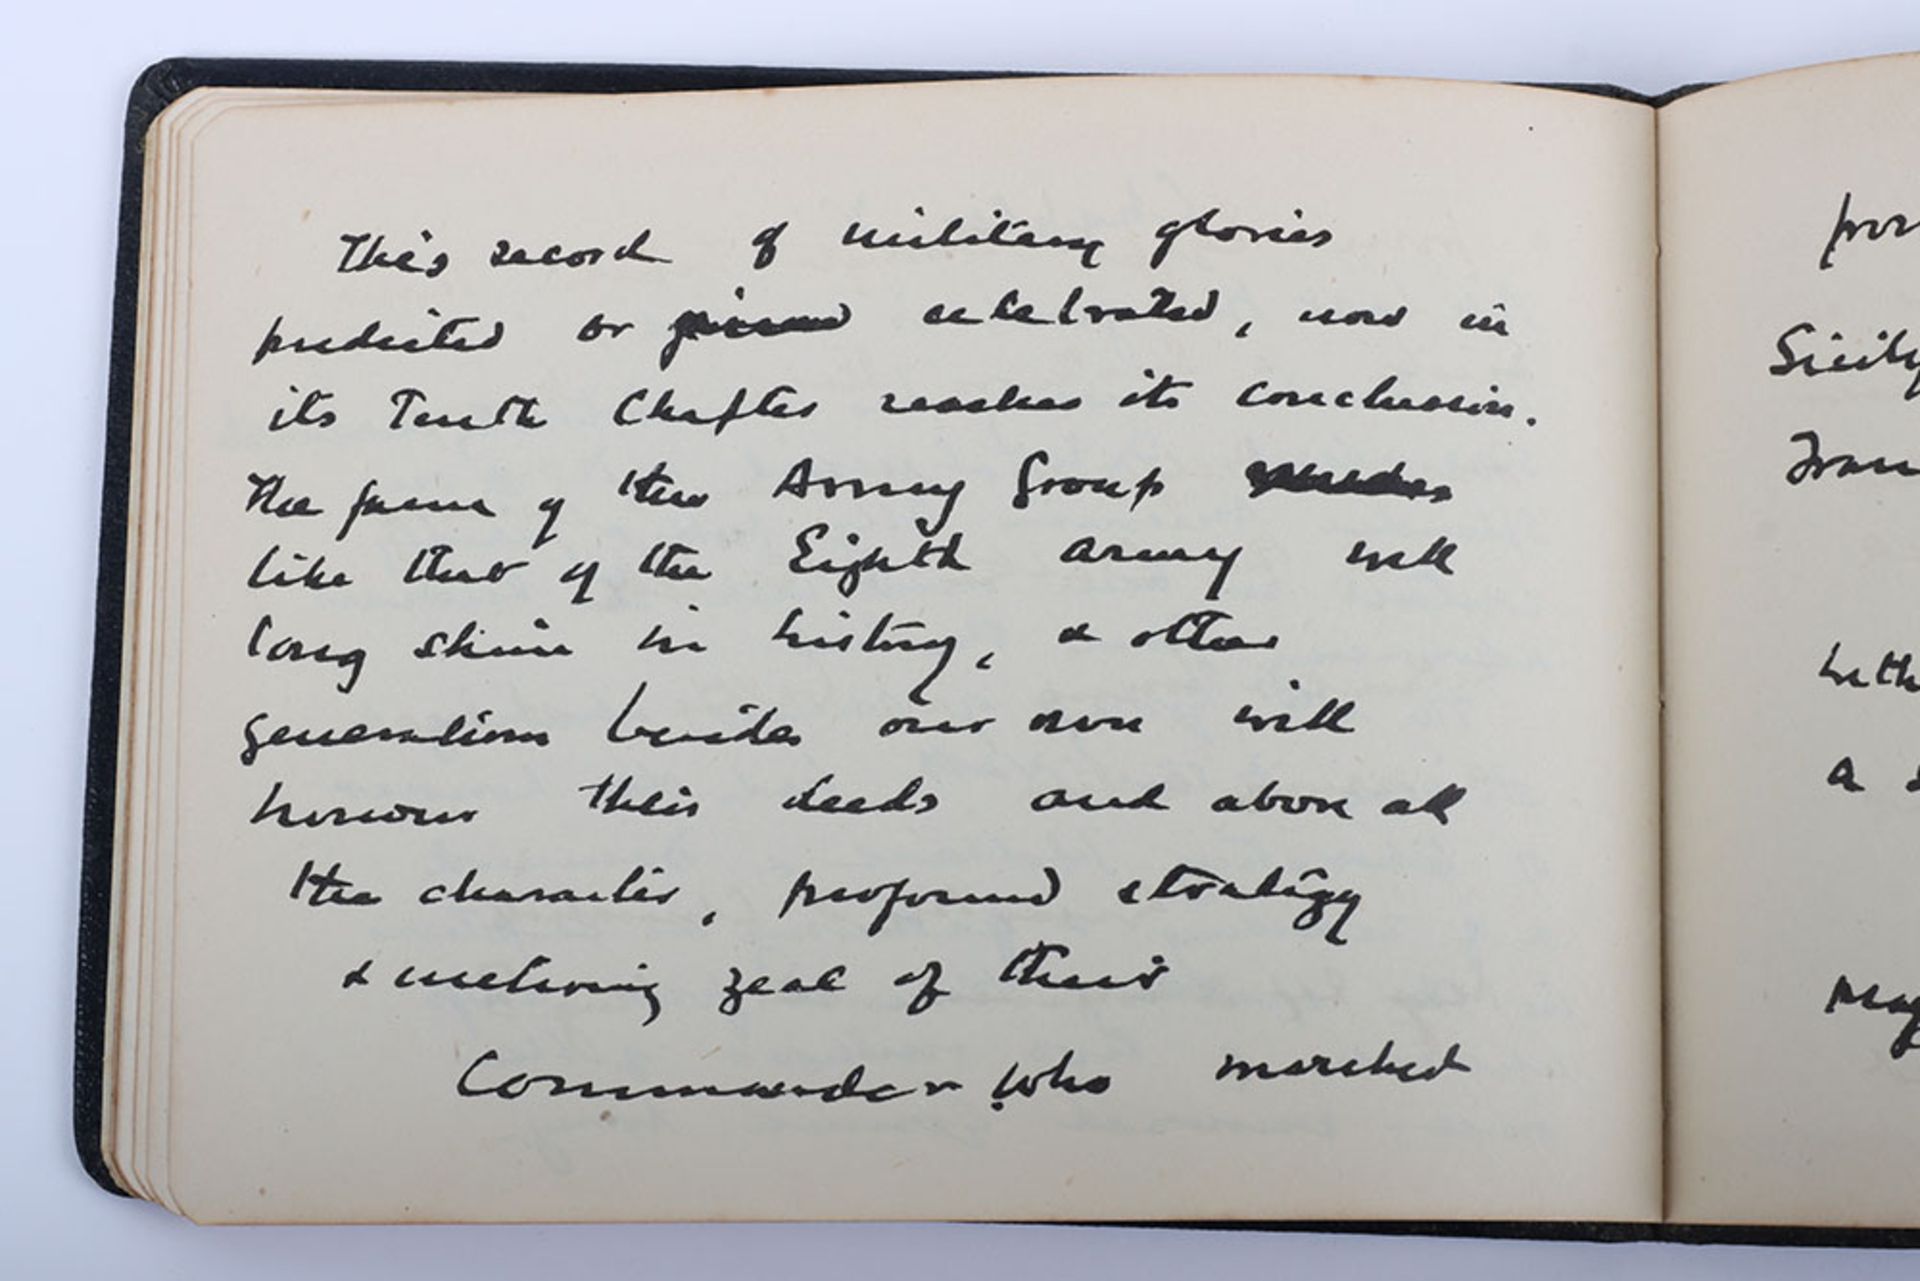 This record of military glories
predicted or celebrated, now in
its Tenth Chapter reaches its conclusion.
The fame of the Army Group
like that of the Eighth Army will
long shine in history, & other
generations besides our own will
honour their deeds and above all
the character, profound strategy
& untiring zeal of their
Commander who marched
from
Sicily
a